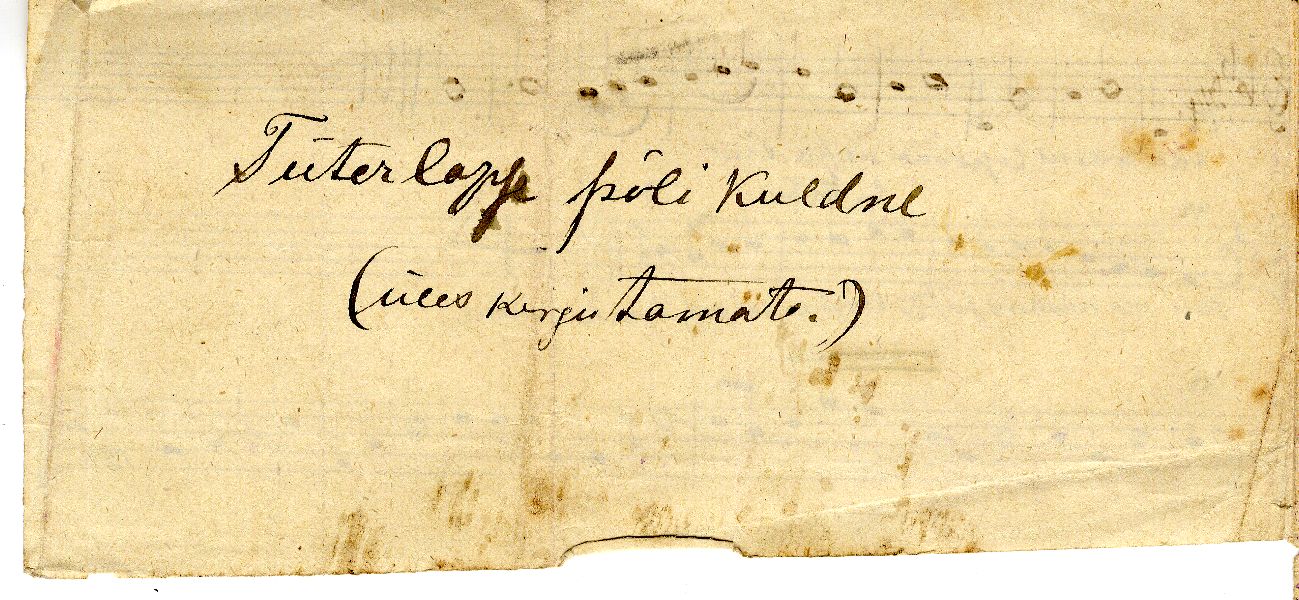 Tüterlapse põli kuldne
(üles kirjutamata.)